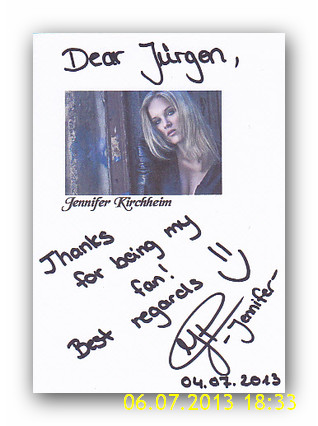 Dear Jürgen,
Jennifer Kirchheim
Thanks
for being my
fan! =)
Best regards
-Jennifer-
04.07.2013
06.07.2013 18:33